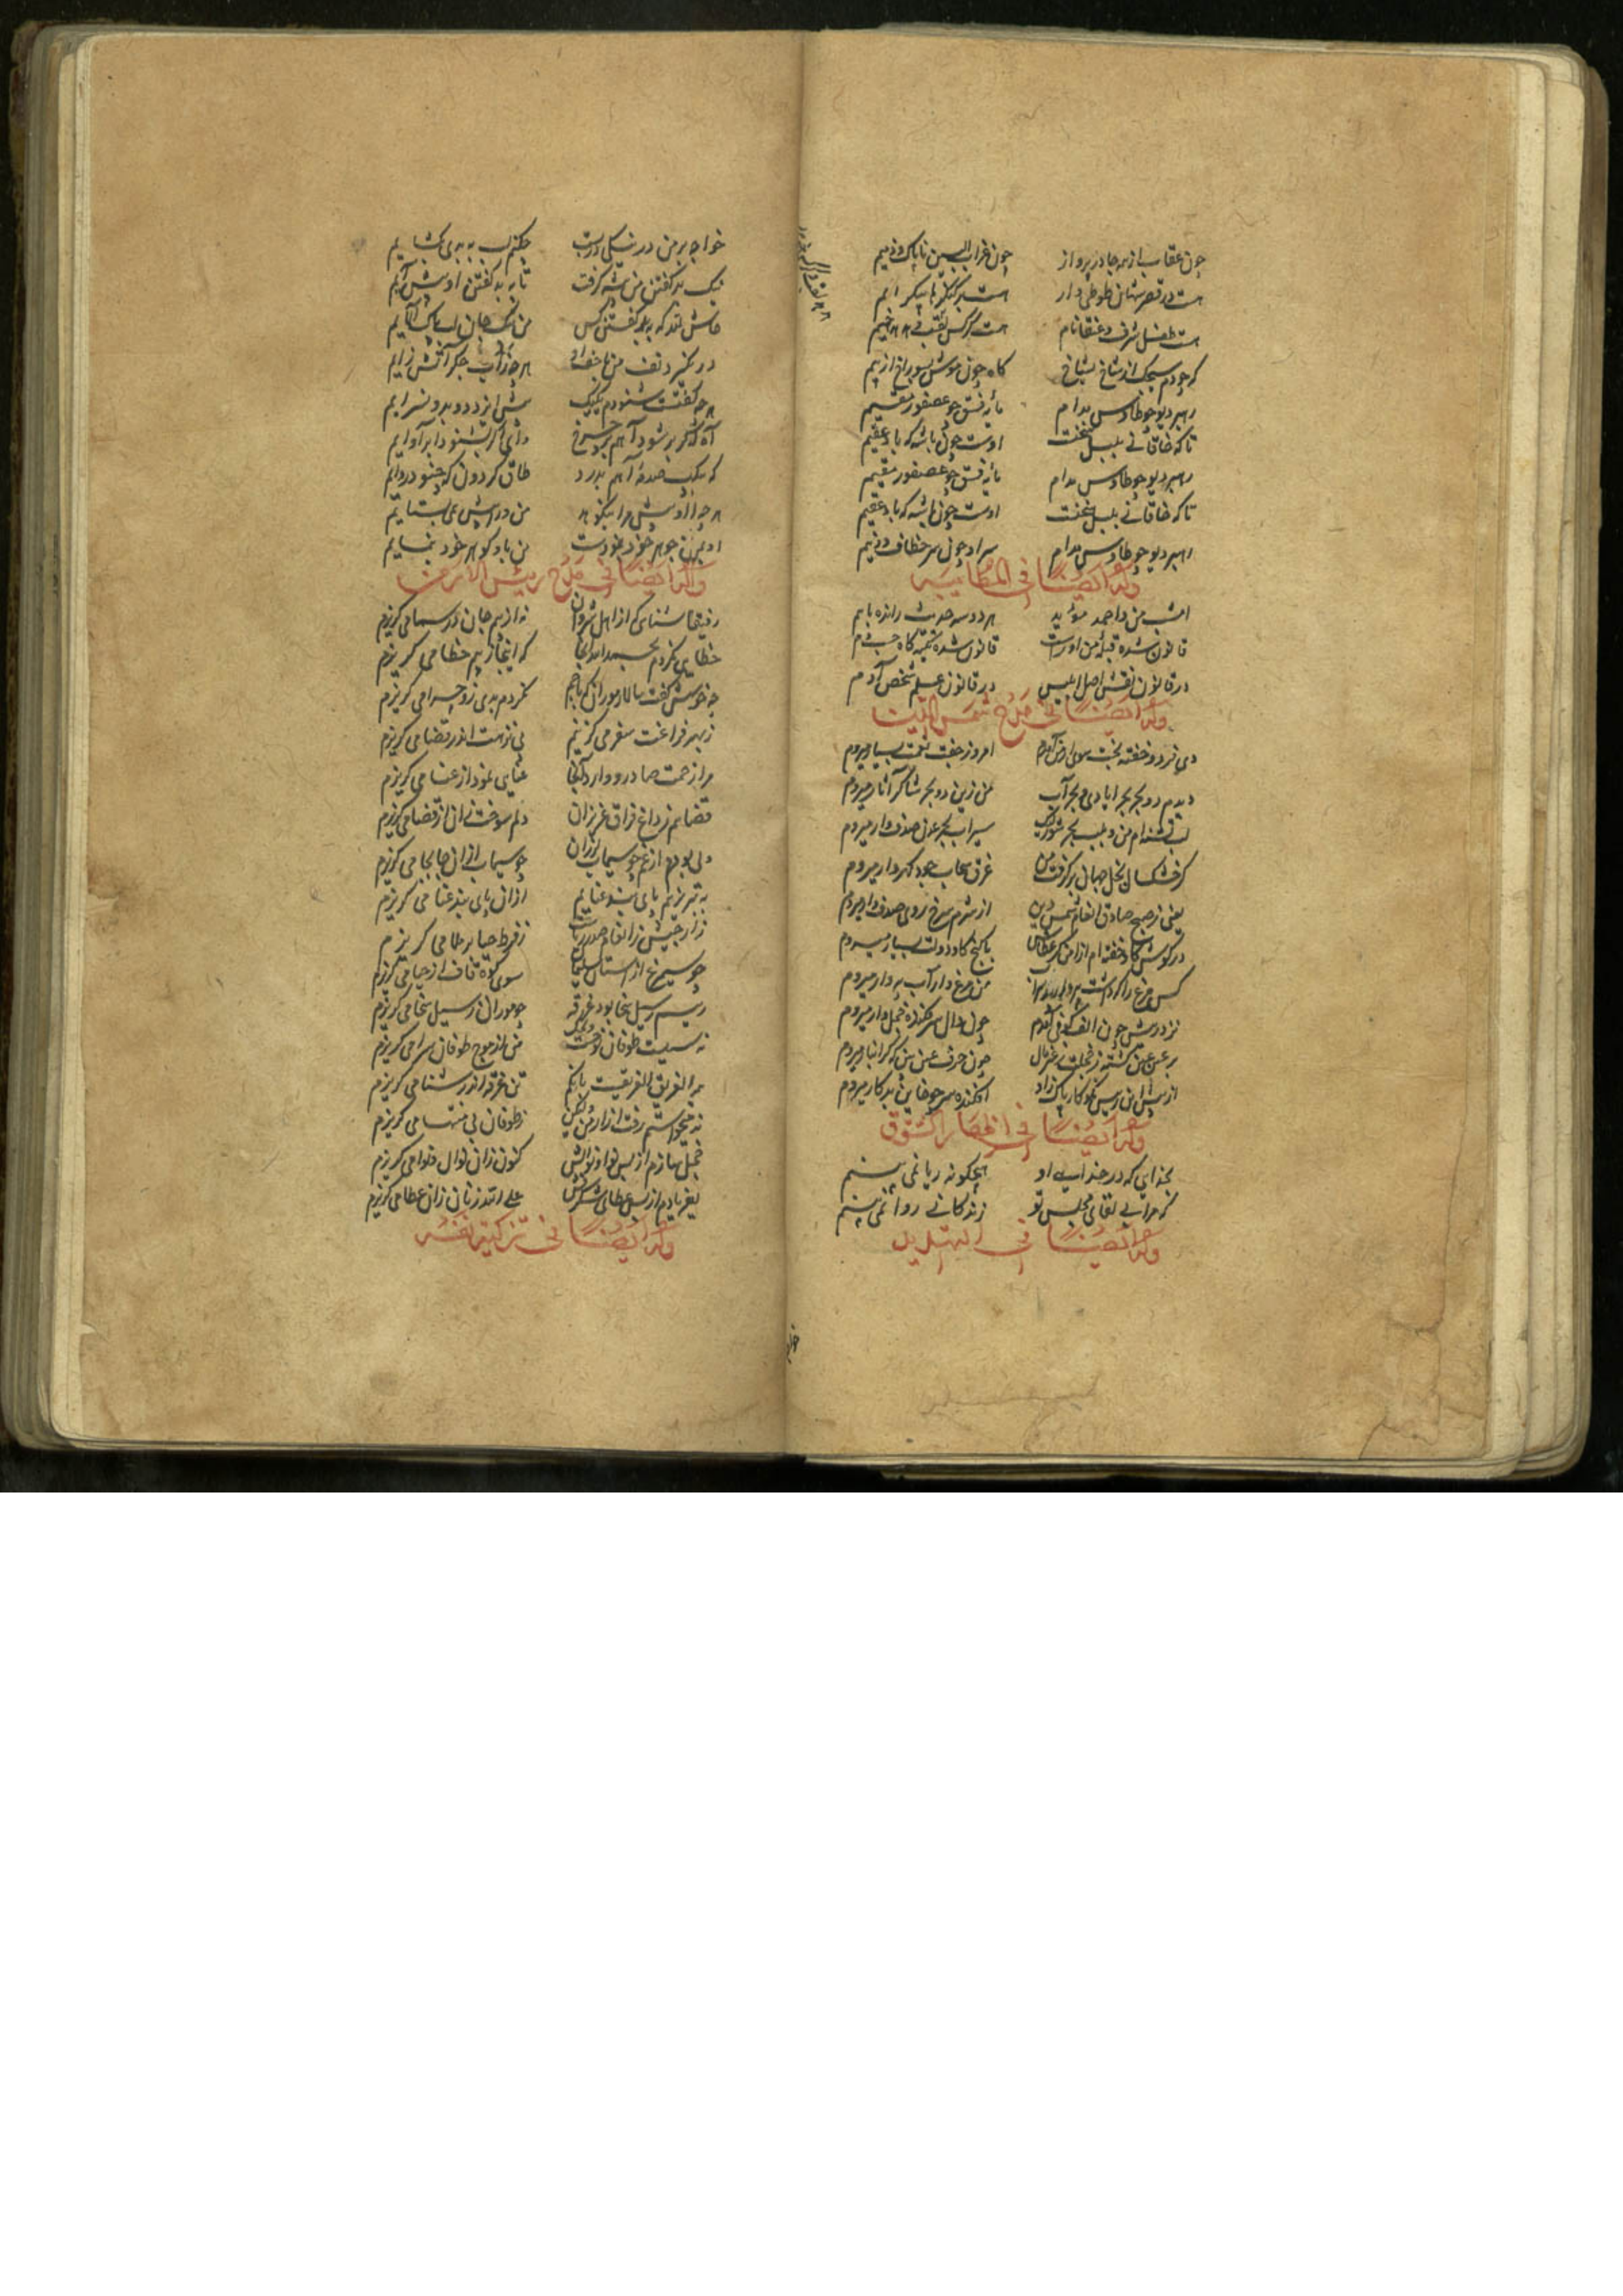 چون عقاب از همه جا در پرواز چون غراب البین ناپاک و ذمیم
هست در قصر شهان طوطی وار هست بر کنگرها پیکر ایم
هست طفل شرف و عنقا نام هست کرکس لقب
که چو دم سیجک از شاخ بشاخ کاه چون موش بسوراخ از بیم
رهبر دیو چو طاوس مدام مایه فسق چو عصفور مقیم
تا که خاقانی بلبل سخنست اوست چون باشه که باد عقیم
رهبر دیو چو طاوس مدام مایه فسق چو عصفور مقیم
تا که خاقانی بلبل سخنست اوست چون باشه که باد عقیم
رهبر دیو چو طاوس مدام سراد چون سر خطاف دونیم
وله ایضا فی المطایبه
امشب من و احمد مؤید هر دو سه حدیث رانده باهم
قانون شده قبله من اوراست قانون شده تکیه گاه
در قانون نقش اصل ابلیس در قانون علم شخص آدم
وله ایضا فی مدح شمس الدین
دی فرد و خفته بخت سوی ارض آمدم امروز جفت نعمت بسیار میروم
دیدم دو بحر بحر ایادی و بحر آب من زین دو بحر شاکر آثار میروم
لب تشنه ام من و بلب بحر شور لیک سیراب بحر عذب صدف وار میروم
غرق سحاب جود گهردار میروم
یعنی ز صبح صادق انعام شمس دین از شرم سرخ روی صدف وار میروم
در گوش گاو خفته ام از امن کز عطاش با گنج گاو و دولت بیدار میروم
من مرغ وار آب بپر وار میروم
نزد رئیس چون الف کوفی آمدم چون دال سرفکنده خجل وار میروم
بر عین عین کشته ز خجلت ز غبن مال چون حرف عین بین که گرانبار میروم
از پیش این رئیس نکو کار پاک زاد افکنده سر چو خاین بد کار میروم
وله ایضا فی اظهار الشوق
بخدایی که در خدایی او هیچگونه ریا نمی بینم
که مرا بی لقای مجلس تو زندگانی روا نمی بینم
وله ایضا فی التهدید
خواجه بر من در نیکی دربست چکنم لب به بدی بگشایم
نیک بد گفتن من پیشه گرفت تا به بد گفتن او پیش آیم
حاش لله که به بد گفتن کس من سگ جان لب پاک آلایم
در نگیرد تف من با خصمان هر چه زآب جگر آتش زایم
هر چه گفتست شنودم یکیک پیش ایزد دو بدو بسرایم
آه گر بر شود آهم بچرخ وای اگر بشنود ابر آوایم
که بیک صدمه آهم بدرد طاق گردون که چنو دروایم
هر چه او پیش مرا نیکو هد من در پیش همی بستایم
او بمن جوهر خود بنمودست من باو گوهر خود بنمایم
وله ایضا فی مدح رئیس الارمن
رفیقا شناسی که از اهل شروان نه از بیم جان در شما می گریزم
خطایی نکردم بحمدالله آنجا که اینجا ز بیم خطا می گریزم
چه خوش گفت سالار موران که با جم نکردم بدی زو چرا می گریزم
ز بهر فراغت سفر می گزینم پی نزهت اندر فضا می گریزم
مرا زحمت صادر و وارد آنجا عنایی نمود از عنا می گریزم
قضا هم ز داغ فراق عزیزان دلم سوخت زان از قضا می گریزم
دلی بودم از غم چو سیماب لرزان چو سیماب از ان جابجا می گریزم
به تبریز هم پای بند عنایم ازان پای بند عنا می گریزم
ز ارجیش ز انعام صدر ریاست ز فرط حیا بر ملا می گریزم
چو سیمرغ از آستان سلیمان سوی کوه قاف از حیا می گریزم
رییسم ز سیل سخا بود غرقه چو موران ز سیل سخا می گریزم
نه سیلست طوفان نوحست ولیکن من از موج طوفان سرا می گریزم
من الغریق الغریقست بانگم تن غرقه اندر شنا می گریزم
ز طوفان بی منتها می گریزم
خجل سازم از بس نوا و نوالش کنون زان نوال و نوا می گریزم
بفریادم از بس عطای شگرفش علی الله زنان زان عطا می گریزم
وله ایضا فی تزکیة نفسه